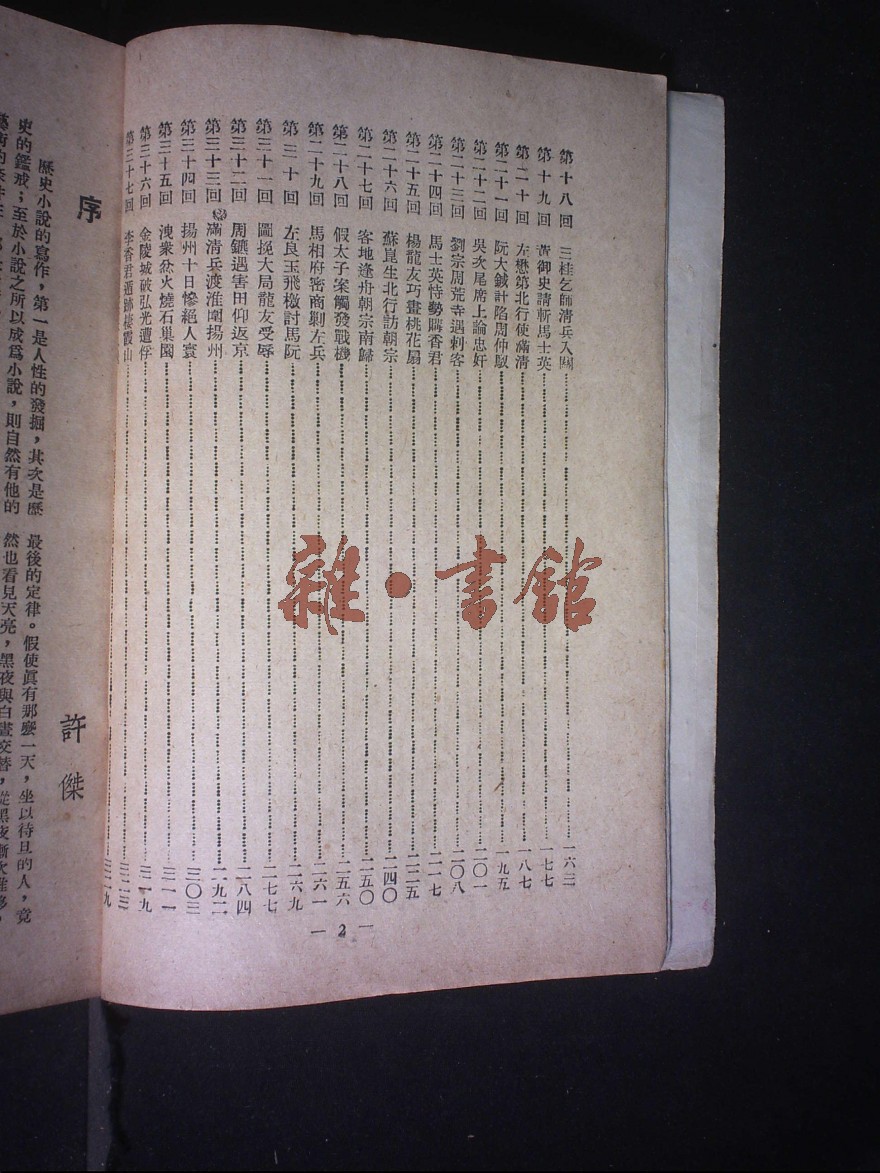 第十八回 三桂乞師清兵入關 一六三
第十九回 黃御史請斬馬士英 一七七
第二十回 左懋第北行使滿清 一八七
第二十一回 阮大鋮計陷周仲馭 一九五
第二十二回 吳次尾席上論忠奸 二〇一
第二十三回 劉宗周荒寺遇刺客 二〇八
第二十四回 馬士英恃勢購香君 二一七
第二十五回 楊龍友巧畫桃花扇 二二五
第二十六回 蘇崑生北行訪朝宗 二四〇
第二十七回 客地逢舟朝宗南歸 二五〇
第二十八回 假太子案觸發戰機 二五六
第二十九回 馬相府密商剿左兵 二六一
第三十回 左良玉飛檄討馬阮 二六九
第三十一回 圖挽大局龍友受辱 二七七
第三十二回 周鑣遇害田仰返京 二八四
第三十三回 滿清兵渡淮圍揚州 二九二
第三十四回 揚州十日慘絕人寰 三〇三
第三十五回 洩衆忿火燒石巢園 三一一
第三十六回 金陵城破弘光遭俘 三一九
第三十七回 李香君遁跡棲霞山 三二三
三二九
— 2 —
雜·書館
序
許傑
歷史小說的寫作，第一是人性的發掘，其次是歷
史的鑑戒；至於小說之所以成爲小說，則自然有他的
最後的定律。假使眞有那麼一天，坐以待旦的人，竟
然也看見天亮，黑夜與白晝交替，從黑夜漸次推移，